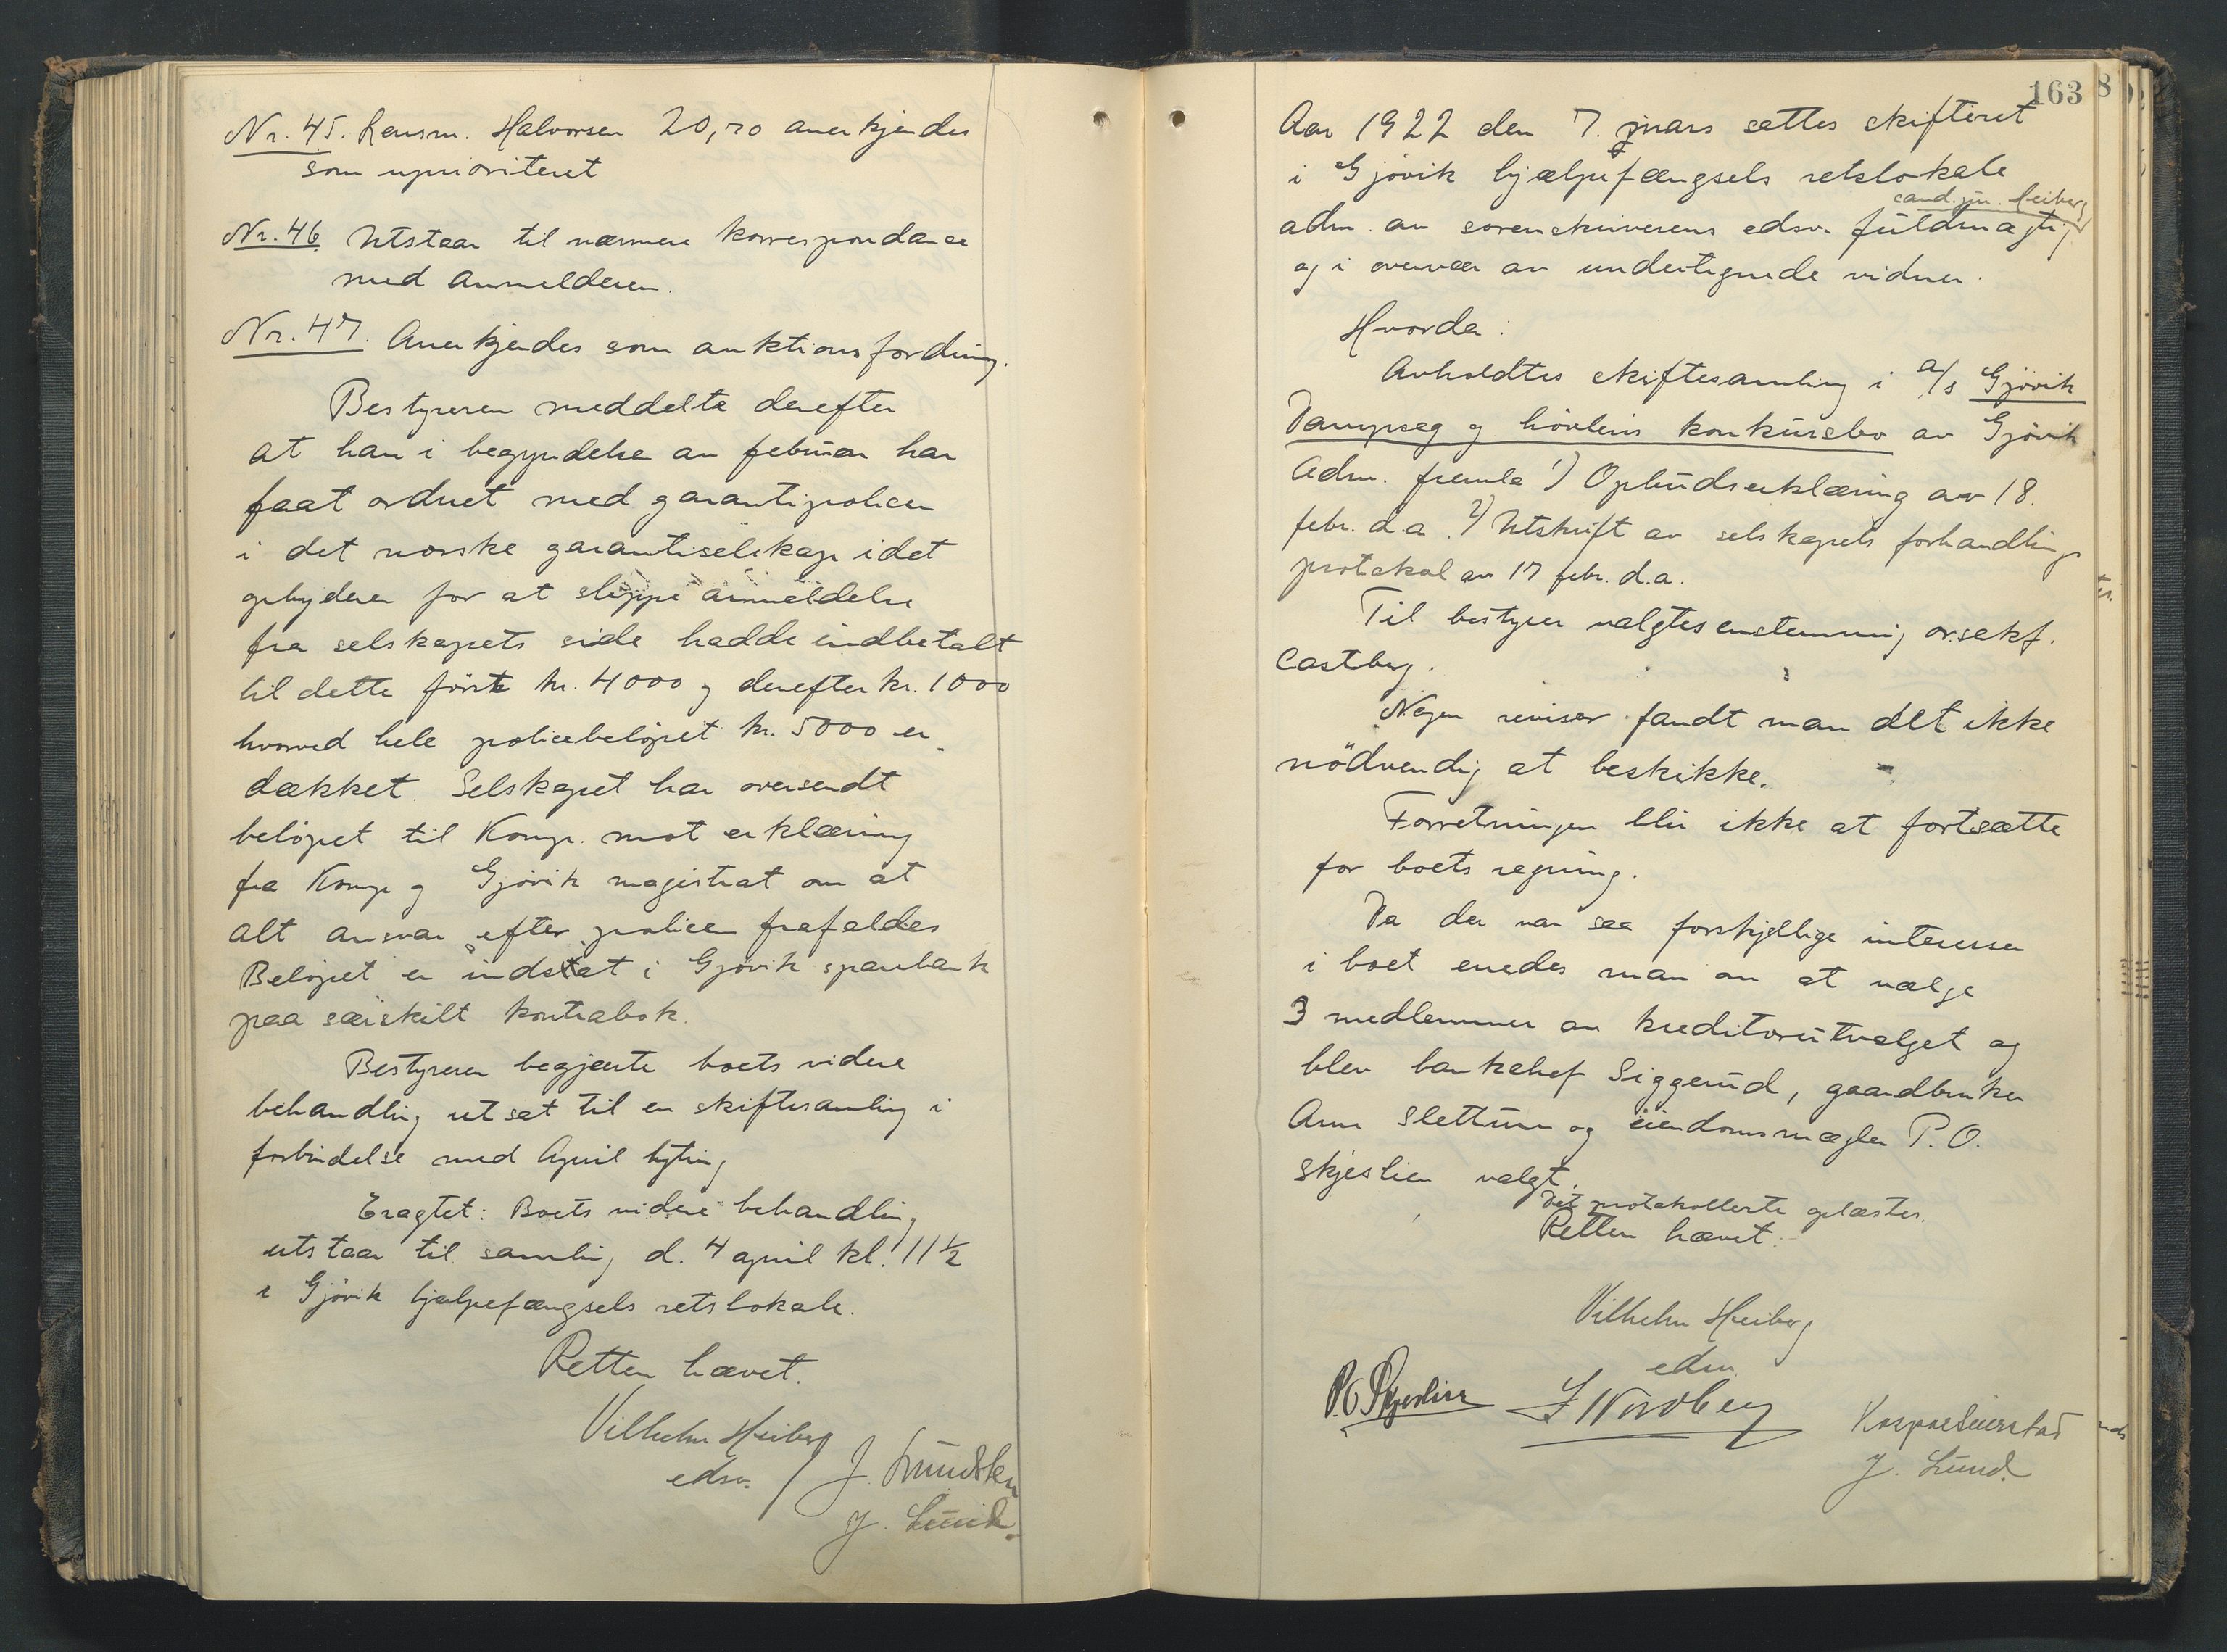 Nr. 45. Lensm. Halvorsen 20,70 anerkjendes
som uprioritert
Nr. 46 Utstaar til nærmere korrespondance
med anmelderen.
Nr. 47. Anerkjendes som auktionsfordring.
Bestyreren meddelte derefter
at han i begyndelsen av februar har
faat ordnet med garantipolicen
i det norske garantiselskap idet
for at slippe anmeldelse
fra selskapets side hadde indbetalt
til dette først kr. 4000 og derefter kr. 1000
hvorved hele policebeløpet kr. 5000 er
dækket. Selskapet har oversendt
beløpet til Komp. mot erklæring
fra Komp og Gjøvik magistrat om at
alt ansvar efter policen frafaldes
Beløpet er indsat i Gjøvik sparebank
paa særskilt kontrabok.
Bestyreren begjærte boets videre
behandling utsat til en skiftesamling i
forbindelse med April
Eragtet: Boets videre behandling
utstaar til samling d. 4 april kl. 11½
i Gjøvik hjælpefængsels retslokale.
Retten hævet.
Vilhelm Heiberg
edsv. / J. Sundsten
J. Lund.
163
Aar 1922 den 7. mars sattes skifteret
i Gjøvik hjælpefængsels retslokale
cand. jur. Heiberg
adm. av sorenskriverens edsv. fuldmægtig
og i overvær av undertegnede vidner.
Hvorda:
Avholdtes skiftesamling i a/s Gjøvik
Dampsag og høvleris konkursbo av Gjøvik
Adm. fremla 1) Opbudserklæring av 18.
febr. d.a. 2) Utskrift av selskapets forhandlings
protokol av 17 febr. d.a.
Til bestyrer valgtes enstemmig o.r.sakf.
Castberg.
Nogen revisor fandt man det ikke
nödvendig at beskikke.
Forretningen blir ikke at fortsætte
for boets regning.
Da der var saa forskjellige interesser
i boet enedes man om at vælge
3 medlemmer av kreditorutvalget og
blev bankchef Siggerud, gaardbruker
Arne Slettum og eiendomsmægler P. O.
Skjeslien valgt.
Det protokollerte oplæstes.
Retten hævet.
Vilhelm Heiberg
edsv.
P.O. Skjeslien J Nordberg
J. Lund.